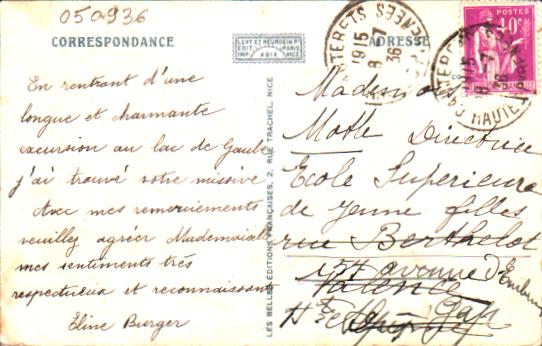 05a936
CORRESPONDANCE
LEVY ET NEURDEIN Rs
EDIT. PARIS
IMP. NICE
ADRESSE
POSTES
40c
CAUTERETS
1915
8-7
36
HAUTES PYRENEES
En rentrant d'une
longue et charmante
excursion au lac de Gaube
j'ai trouvé votre missive
Avec mes remerciements
veuillez agréer Mademoiselle
mes sentiments très
respectueux et reconnaissants
Eline Burger
LES BELLES ÉDITIONS FRANÇAISES, 2, RUE TRACHEL, NICE
Mademois
Mothe Directrice
Ecole Supérieure
de Jeune filles
rue Berthelot
avenue d'Embrun
Valence
Gap